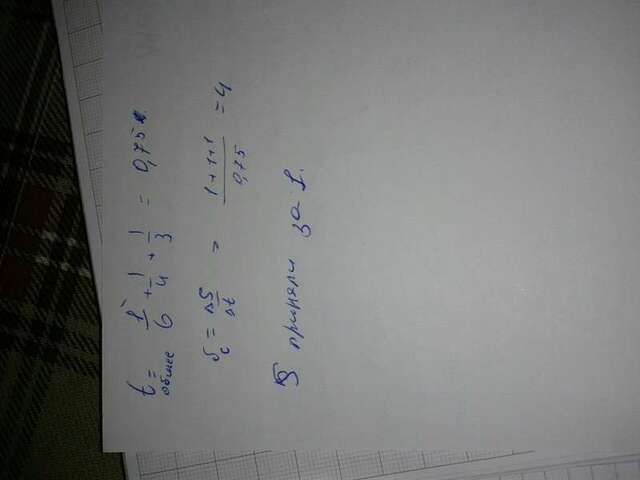 t общее = 1/6 + 1/4 + 1/3 = 0,75 ч.
υc = ΔS/Δt = (1+1+1)/0,75 = 4
S приняли за 1.